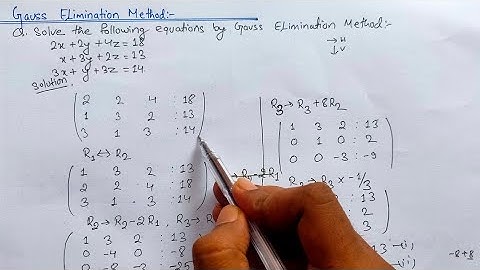 Gauss Elimination Method:-
Q. Solve the following equations by Gauss Elimination Method:-
2x+2y+4z=18
x+3y+2z=13
3x+y+3z=14
Solution,
→H
↓V
2 2 4 : 18
1 3 2 : 13
3 1 3 : 14
R₁↔R₂
1 3 2 : 13
2 2 4 : 18
3 1 3 : 14
R₂→R₂-2R₁, R₃→R
1 3 2 : 13
0 -4 0 : -8
0 -8 -3 -25
R₃→R₃+8R₂
1 3 2 : 13
0 1 0 : 2
0 0 -3 : -9
R₃ × -1/3
: 13
: 2
: 3
-8+8